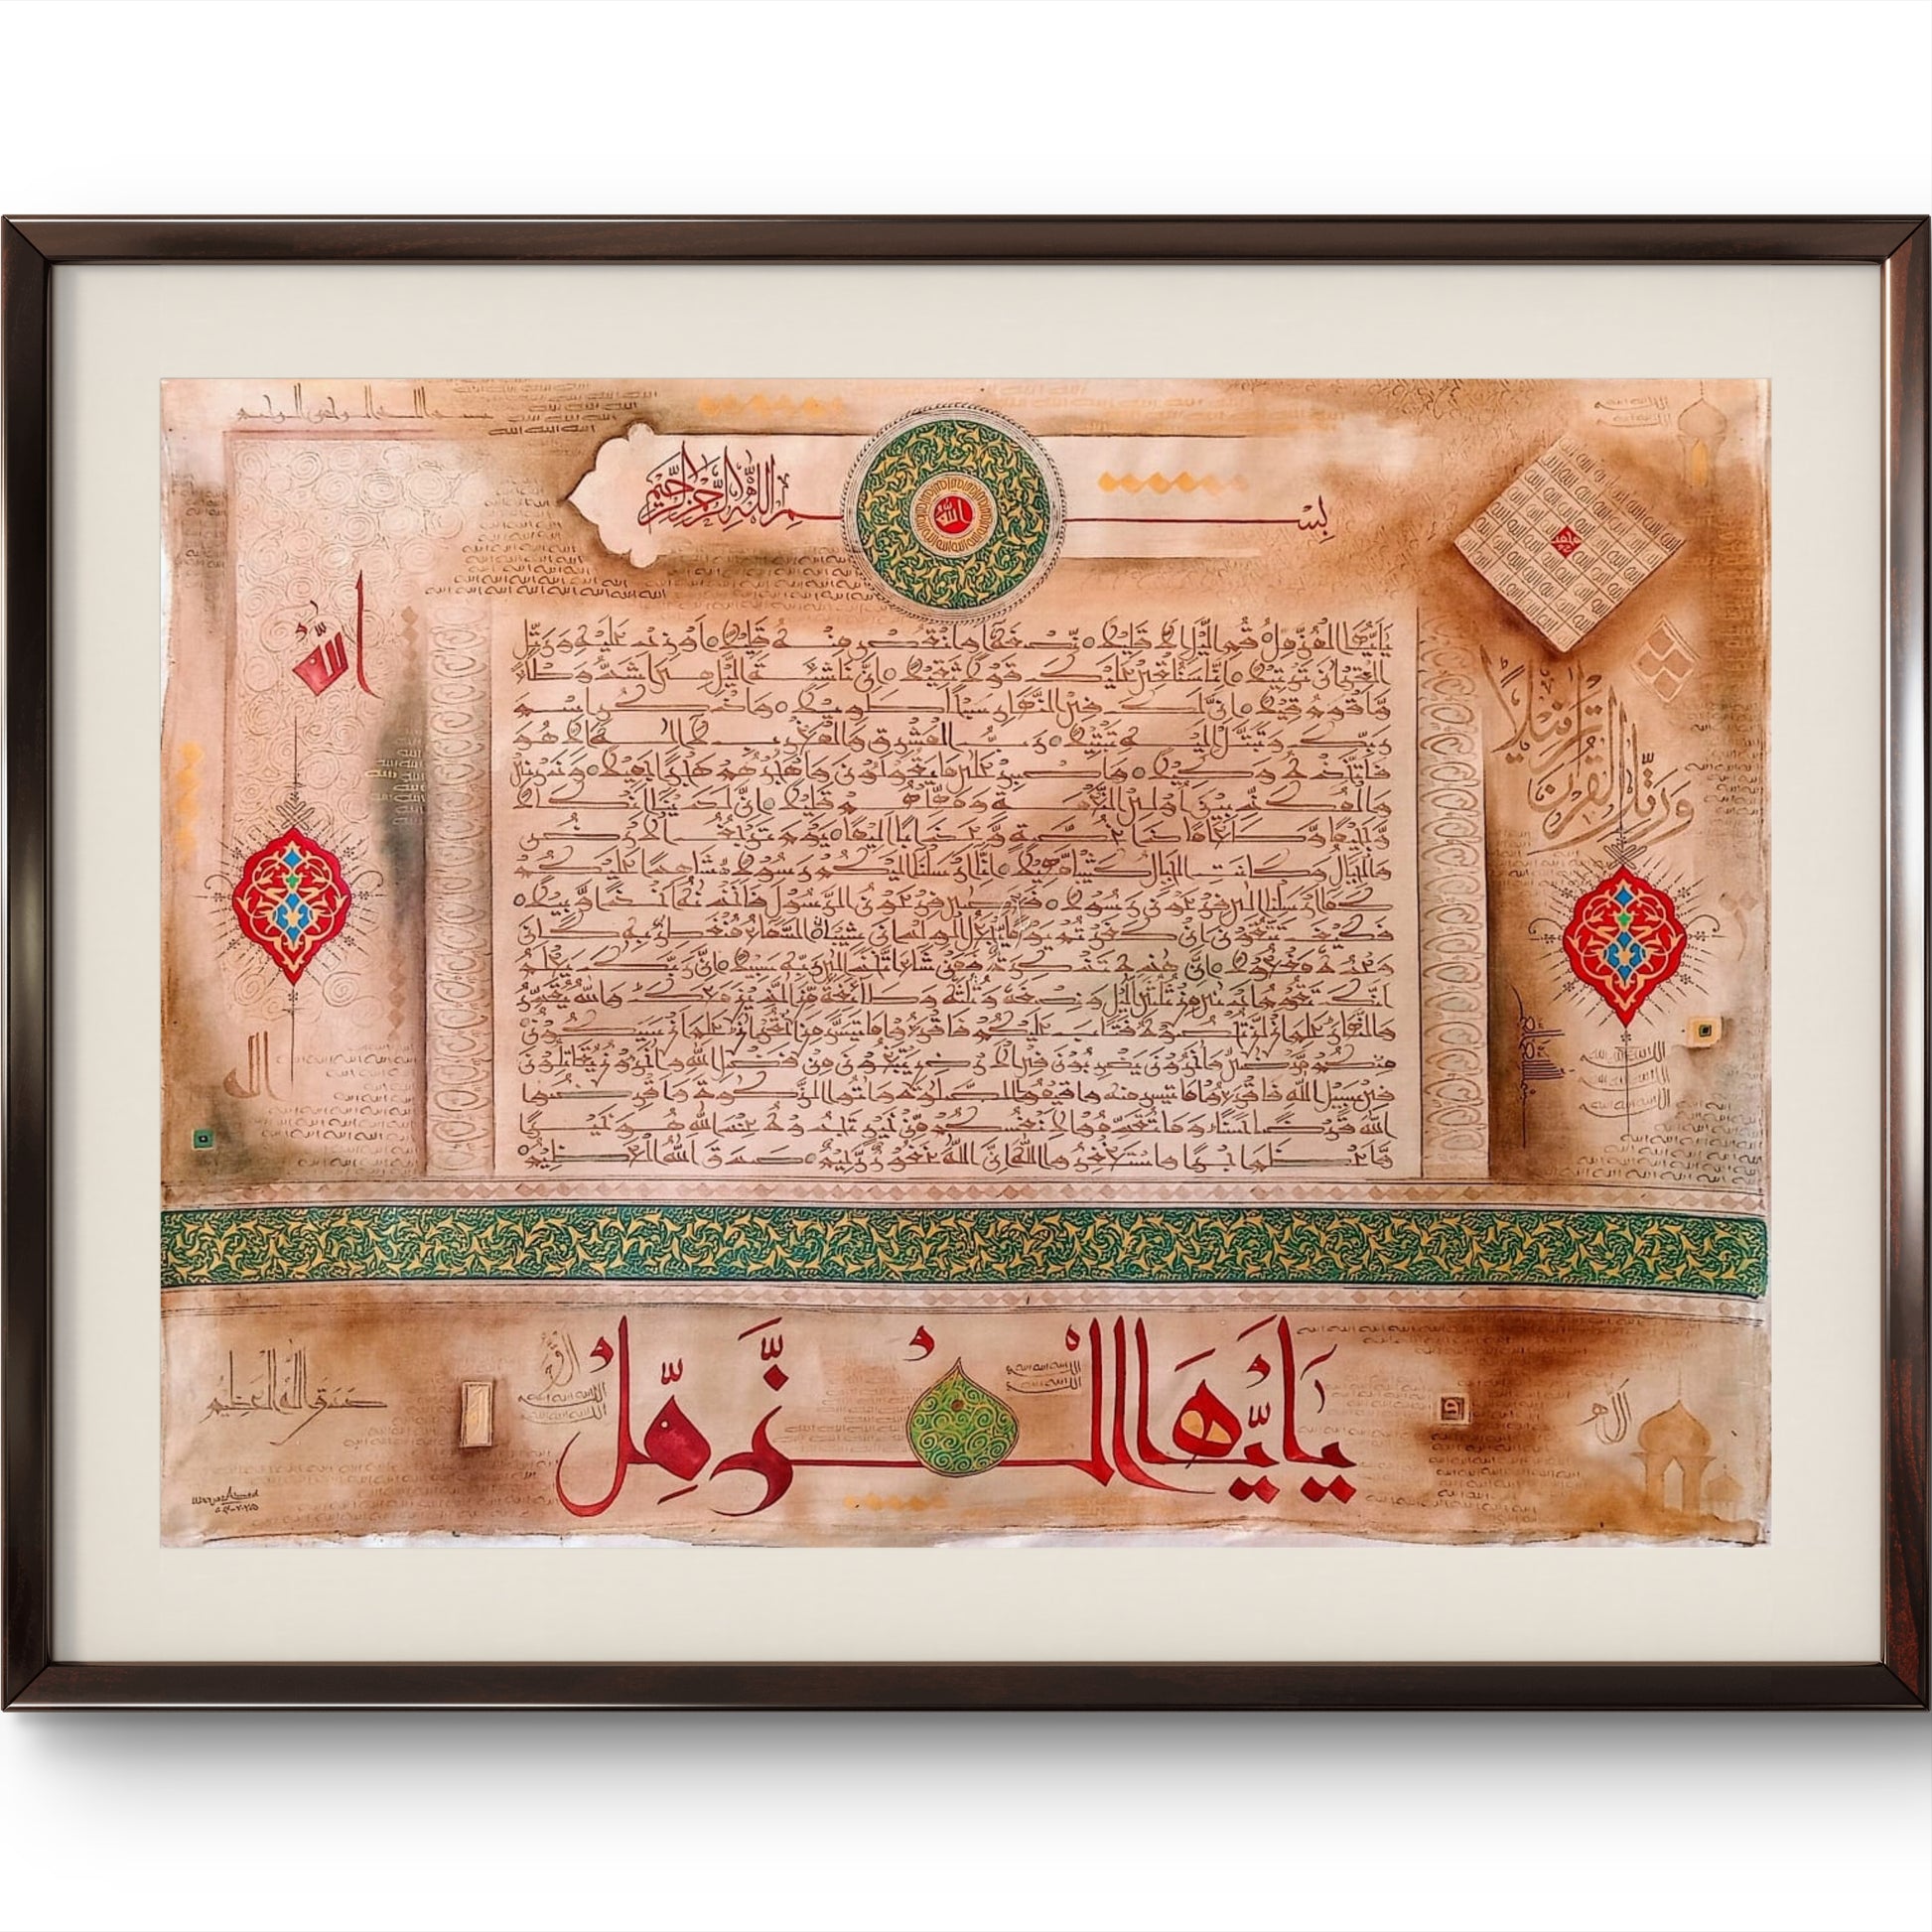 بسم الله الرحمن الرحيم
بِسْمِ اللهِ الرَّحْمٰنِ الرَّحِيْمِ
الله
الله
يٰاَيُّهَا الْمُزَّمِّلُ قُمِ الَّيْلَ اِلَّا قَلِيْلًا نِّصْفَهٗ اَوِ انْقُصْ مِنْهُ قَلِيْلًا اَوْ زِدْ عَلَيْهِ وَرَتِّلِ
الْقُرْاٰنَ تَرْتِيْلًا اِنَّا سَنُلْقِيْ عَلَيْكَ قَوْلًا ثَقِيْلًا اِنَّ نَاشِئَةَ الَّيْلِ هِيَ اَشَدُّ وَطْاً
وَّاَقْوَمُ قِيْلًا اِنَّ لَكَ فِي النَّهَارِ سَبْحًا طَوِيْلًا وَاذْكُرِ اسْمَ
رَبِّكَ وَتَبَتَّلْ اِلَيْهِ تَبْتِيْلًا رَبُّ الْمَشْرِقِ وَالْمَغْرِبِ لَا اِلٰهَ اِلَّا هُوَ
فَاتَّخِذْهُ وَكِيْلًا وَاصْبِرْ عَلٰى مَا يَقُوْلُوْنَ وَاهْجُرْهُمْ هَجْرًا جَمِيْلًا وَذَرْنِيْ
وَالْمُكَذِّبِيْنَ اُولِي النَّعْمَةِ وَمَهِّلْهُمْ قَلِيْلًا اِنَّ لَدَيْنَا اَنْكَالًا
وَّجَحِيْمًا وَّطَعَامًا ذَا غُصَّةٍ وَّعَذَابًا اَلِيْمًا يَوْمَ تَرْجُفُ الْاَرْضُ
وَالْجِبَالُ وَكَانَتِ الْجِبَالُ كَثِيْبًا مَّهِيْلًا اِنَّا اَرْسَلْنَا اِلَيْكُمْ رَسُوْلًا شَاهِدًا عَلَيْكُمْ
كَمَا اَرْسَلْنَا اِلٰى فِرْعَوْنَ رَسُوْلًا فَعَصٰى فِرْعَوْنُ الرَّسُوْلَ فَاَخَذْنٰهُ اَخْذًا وَّبِيْلًا
فَكَيْفَ تَتَّقُوْنَ اِنْ كَفَرْتُمْ يَوْمًا يَّجْعَلُ الْوِلْدَانَ شِيْبًا السَّمَاءُ مُنْفَطِرٌ بِهٖ كَانَ
وَعْدُهٗ مَفْعُوْلًا اِنَّ هٰذِهٖ تَذْكِرَةٌ فَمَنْ شَاءَ اتَّخَذَ اِلٰى رَبِّهٖ سَبِيْلًا اِنَّ رَبَّكَ يَعْلَمُ
اَنَّكَ تَقُوْمُ اَدْنٰى مِنْ ثُلُثَيِ الَّيْلِ وَنِصْفَهٗ وَثُلُثَهٗ وَطَائِفَةٌ مِّنَ الَّذِيْنَ مَعَكَ وَاللهُ يُقَدِّرُ
وَالنَّهَارَ عَلِمَ اَنْ لَّنْ تُحْصُوْهُ فَتَابَ عَلَيْكُمْ فَاقْرَءُوْا مَا تَيَسَّرَ مِنَ الْقُرْاٰنِ عَلِمَ اَنْ سَيَكُوْنُ
مِنْكُمْ مَّرْضٰى وَاٰخَرُوْنَ يَضْرِبُوْنَ فِي الْاَرْضِ يَبْتَغُوْنَ مِنْ فَضْلِ اللهِ وَاٰخَرُوْنَ يُقَاتِلُوْنَ
فِيْ سَبِيْلِ اللهِ فَاقْرَءُوْا مَا تَيَسَّرَ مِنْهُ وَاَقِيْمُوا الصَّلٰوةَ وَاٰتُوا الزَّكٰوةَ وَاَقْرِضُوا
اللهَ قَرْضًا حَسَنًا وَمَا تُقَدِّمُوْا لِاَنْفُسِكُمْ مِّنْ خَيْرٍ تَجِدُوْهُ عِنْدَ اللهِ هُوَ خَيْرًا
وَّاَعْظَمَ اَجْرًا وَاسْتَغْفِرُوا اللهَ اِنَّ اللهَ غَفُوْرٌ رَّحِيْمٌ صَدَقَ اللهُ الْعَظِيْمُ
وَرَتِّلِ الْقُرْاٰنَ تَرْتِيْلًا
يٰاَيُّهَا الْمُزَّمِّلُ
صَدَقَ اللهُ الْعَظِيْمُ